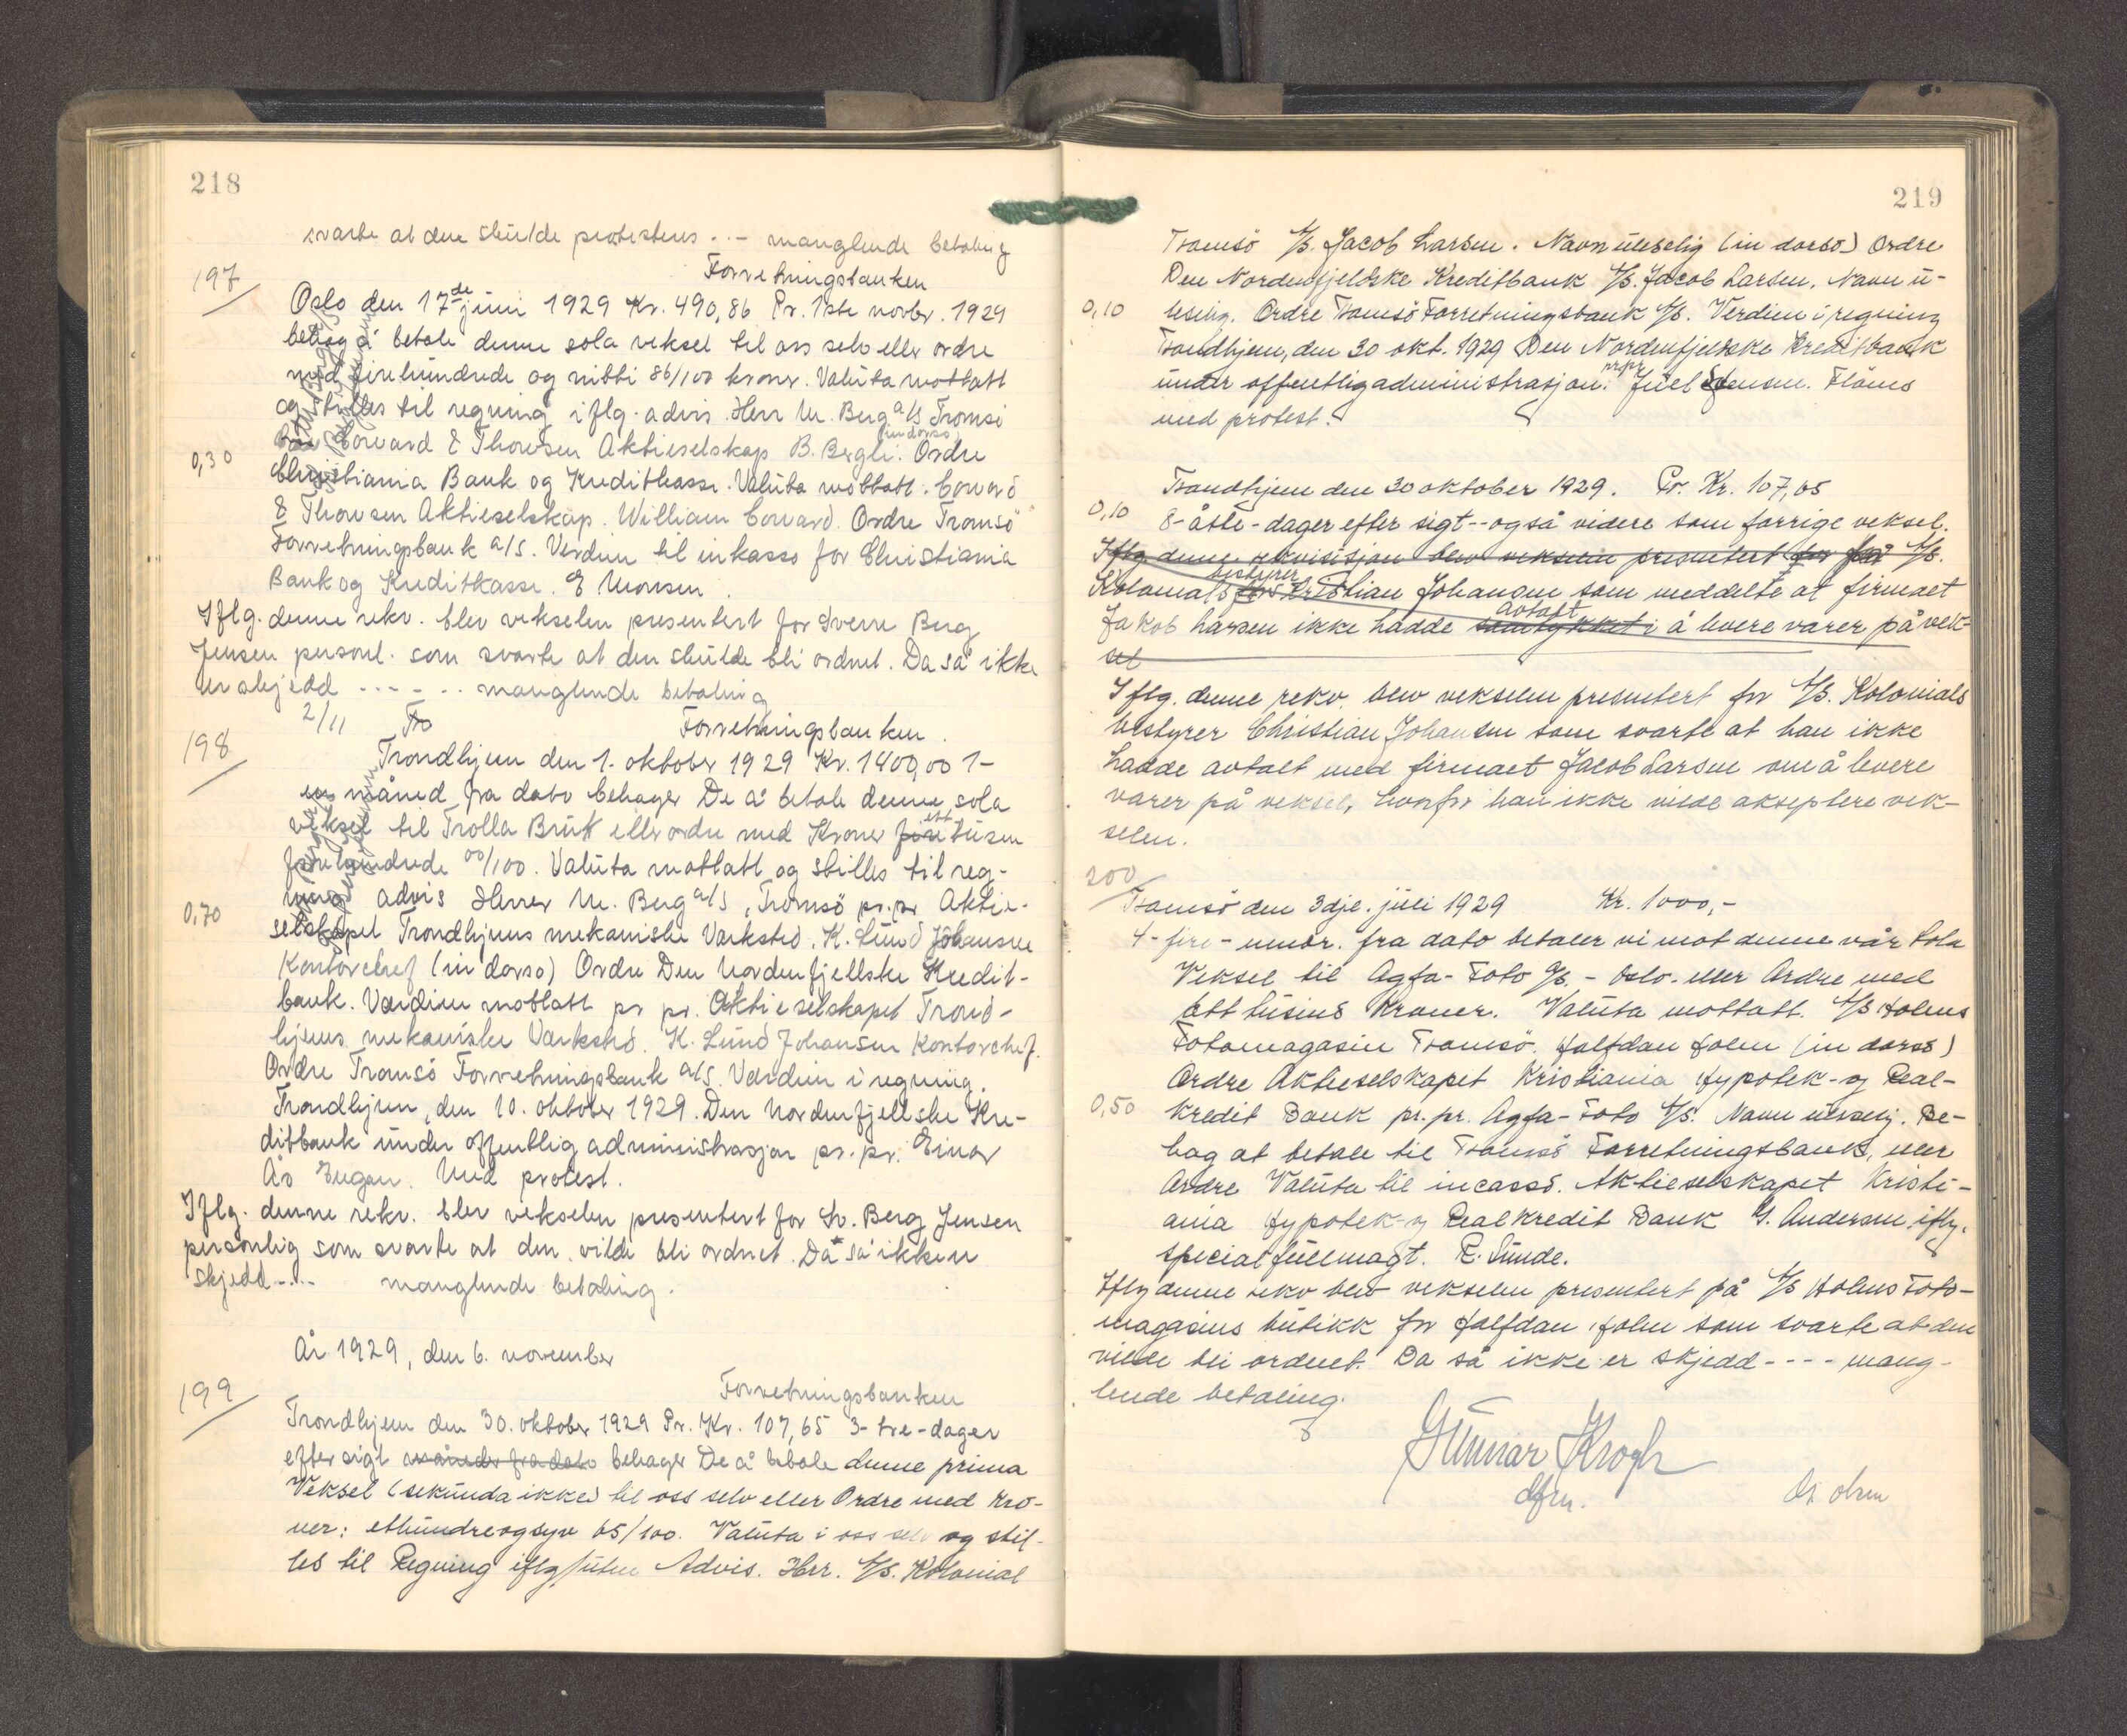 218
svarte at den skulde protesteres ... - manglende betaling
197 Forretningsbanken
Oslo den 17de juni 1929 Kr. 490,86 Pr. 1ste novbr. 1929
behag å betale denne sola veksel til oss selv eller ordre
med firehundrede og nitti 86/100 kroner. Valuta mottatt
og stilles til regning iflg. advis. Herr M. Berg a/s Tromsö
Coward & Thowsen Aktieselskap B. Bergli. (in dorso) Ordre
0,30 Christiania Bank og Kreditkasse. Valuta mottatt. Coward
& Thowsen Aktieselskap. William Coward. Ordre Tromsö
Forretningsbank a/s. Verdien til inkasso for Christiania
Bank og Kreditkasse. E Monsen.
Iflg. denne rekv. blev vekselen presentert for Sverre Berg
Jensen personl. som svarte at den skulde bli ordnet. Da så ikke
er skjedd - - - - . . manglende betaling
2/11 Forretningsbanken.
198 Trondhjem den 1. oktober 1929 Kr. 1400,00 1-
en måned fra dato behager De å betale denne sola
veksel til Trolla Bruk eller ordre med Kroner fire ett tusen
firehundrede 00/100. Valuta mottatt og stilles til reg-
ning advis Herrer M. Berg a/s, Tromsö pr. pr Aktie-
0,70 selskapet Trondhjems mekaniske Værksted. K. Lund Johansen
Kontorchef (in dorso) Ordre Den Nordenfjellske Kredit-
bank. Værdien mottatt pr pr. Aktieselskapet Trond-
hjems mekaniske Værksted. K. Lund Johansen Kontorchef.
Ordre Tromsö Forretningsbank a/s. Værdien i regning.
Trondhjem, den 10. oktober 1929. Den Nordenfjellske Kre-
ditbank under offentlig administrasjon pr. pr. Einar
Ås Engan. Med protest.
Iflg. denne rekv. blev vekselen presentert for Sv. Berg Jensen
personlig som svarte at den vilde bli ordnet. Da så ikke er
skjedd - . . - manglende betaling.
År 1929, den 6. november
199 Forretningsbanken
Trondhjem den 30. oktober 1929 Pr. Kr. 107,65 3- tre-dager
efter sigt måneder fra dato behager De å betale denne prima
Veksel (sekunda ikke) til oss selv eller Ordre med Kro-
ner: ethundreogsyv 65/100. Valuta i oss selv og stil-
les til Regning iflg/uten Advis. Herr. A/S. Kolonial
219
Tromsö A/S. Jacob Larsen. Navn uleselig (in dorso) Ordre
Den Nordenfjeldske Kreditbank A/S. Jacob Larsen. Navn u-
0,10 leselig. Ordre Tromsö Forretningsbank A/S. Verdien i regning
Trondhjem, den 30 okt. 1929 Den Nordenfjeldske Kreditbank
under offentlig administrasjon. pr pr Juel Jensen. Flöms
med protest.
Trondhjem den 30 oktober 1929. Pr. Kr. 107,65
0,10 8-åtte-dager efter sigt--også videre som forrige veksel.
Iflg denne rekvisisjon blev vekselen presentert for for A/S.
Kolonials bestyrer Kristian Johansen som meddelte at firmaet
Jakob Larsen ikke hadde samtykket i avtalt å levere varer på vek-
sel
Iflg. denne rekv. blev vekselen presentert for A/S. Kolonials
bestyrer Christian Johansen som svarte at han ikke
hadde avtalt med firmaet Jacob Larsen om å levere
varer på veksel, hvorfor han ikke vilde akseptere vek-
selen.
200
Tromsö den 3dje. juli 1929 Kr. 1000,-
4-fire-mndr. fra dato betaler vi mot denne vår Sola
Veksel til Agfa-Foto A/S. - Oslo. eller Ordre med
Ett tusind Kroner. Valuta mottatt. A/S Holms
Fotomagasin Tromsö. Halfdan Holm (in dorso)
Ordre Aktieselskapet Kristiania Hypotek- og Real-
0,50 kredit Bank pr. pr. Agfa-Foto A/S. Navn uleselig. Be-
hag at betale til Tromsö Forretningsbank, eller
Ordre Valuta til incasso. Aktieselskapet Kristi-
ania Hypotek- og Realkredit Bank G. Andersen iflg.
specialfullmagt. R. Sunde.
Iflg denne rekv blev vekselen presentert på A/S Holms Foto-
magasins butikk for Halfdan Holm som svarte at den
vilde bli ordnet. Da så ikke er skjedd - - - - mang-
lende betaling.
Gunnar Krogh
dfm.
Ol. Olsen